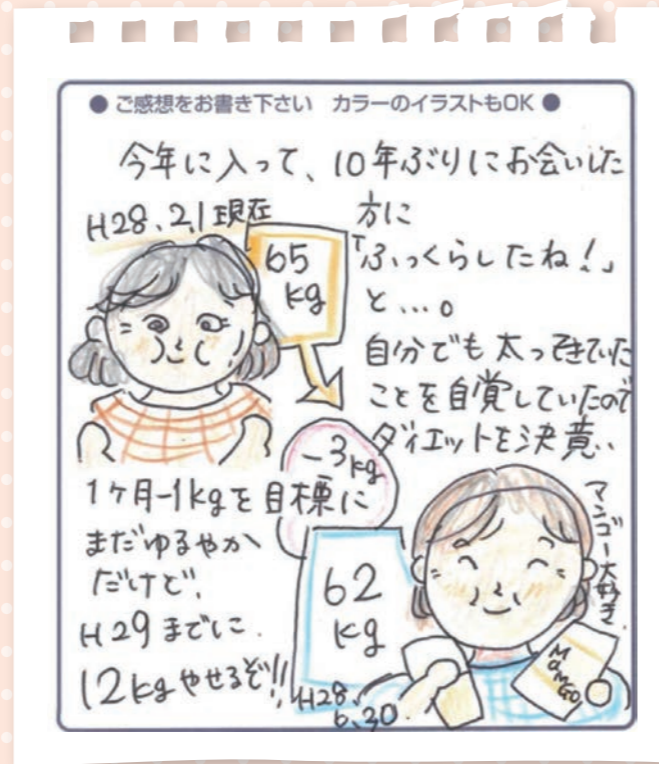 ● ご感想をお書き下さい カラーのイラストもOK ●
今年に入って、10年ぶりにお会いした
方に
「ふっくらしたね！」
と…。
自分でも太ってきていた
ことを自覚していたので
ダイエットを決意‥
H28.2.1現在
65
kg
-3kg
1ヶ月-1kgを目標に
まだゆるやか
だけど、
H29までに
12kgやせるぞ!!
62
kg
H28.
6.30.
マンゴー大好き
MANGO